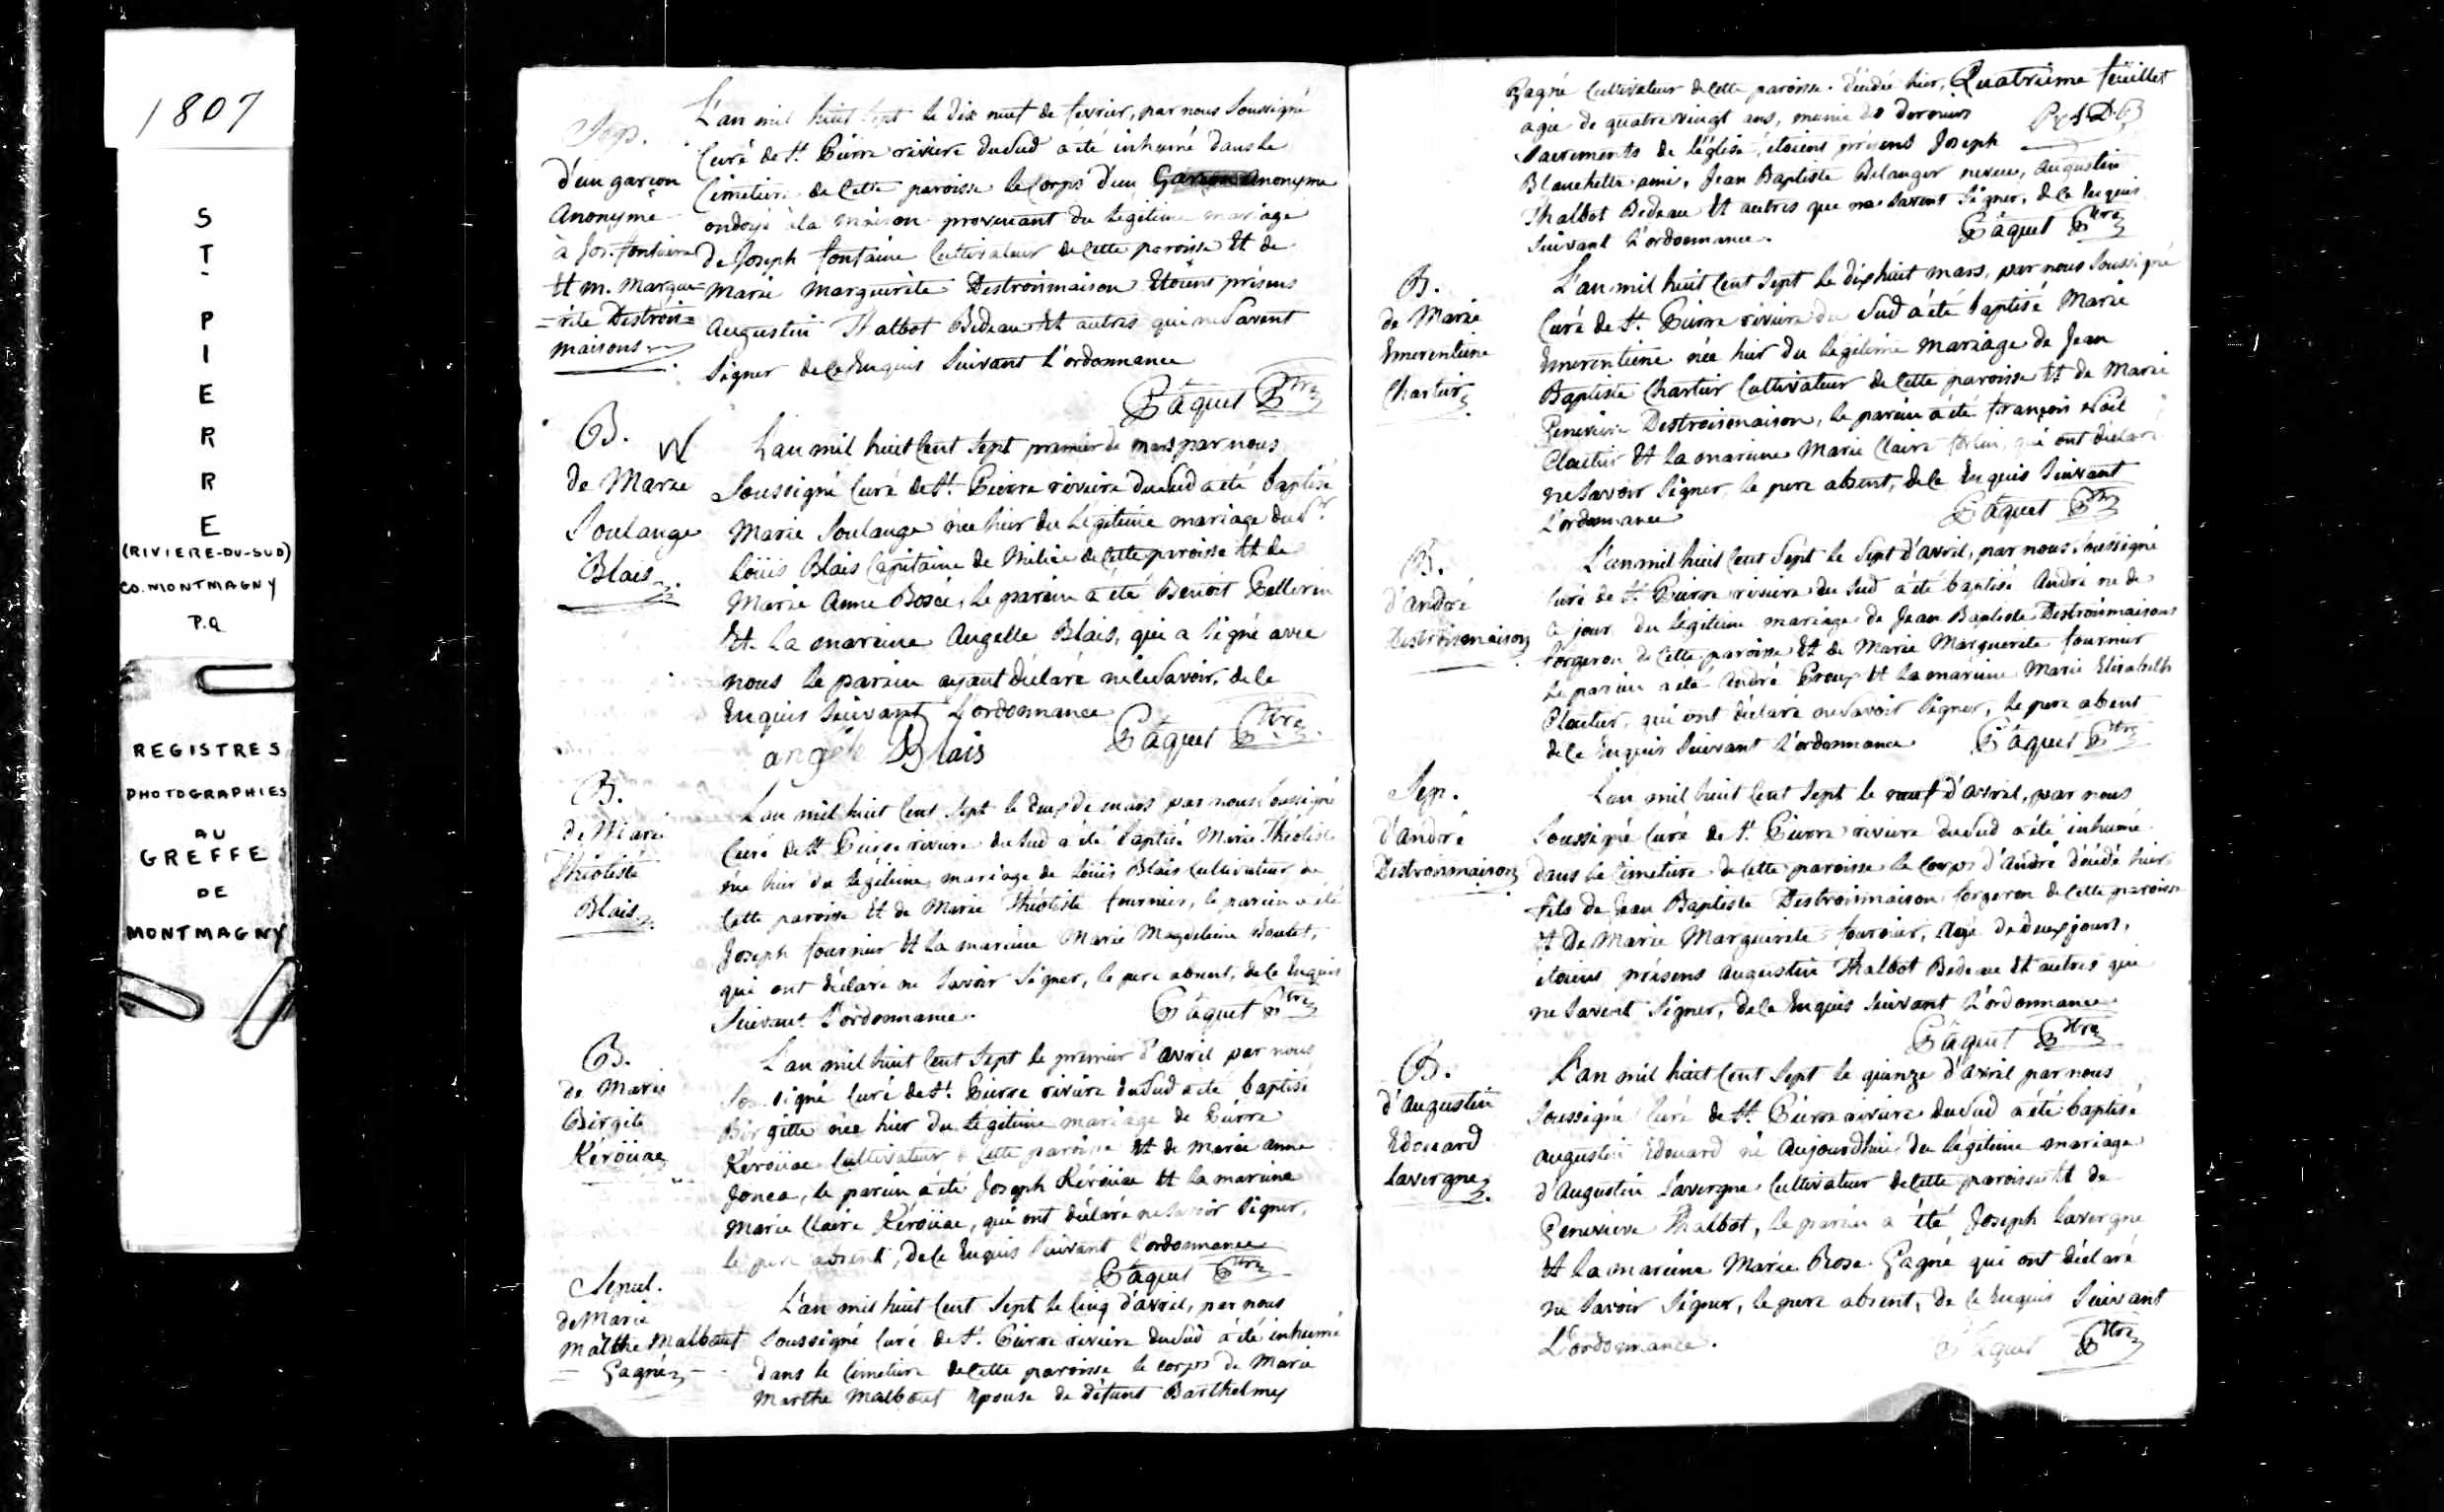 1807
ST-PIERRE
(RIVIERE-DU-SUD)
CO. MONTMAGNY
P.Q
REGISTRES
PHOTOGRAPHIES
AU
GREFFE
DE
MONTMAGNY
Sep.
d'un garçon
Anonyme
à Jos. fontaine
Et m. Margue-
=rite Destroi=
maisons
L'an mil huit Sept le dix neuf de fevrier, par nous Soussigné
Curé de St. Pierre riviere du Sud a été inhumé dans le
Cimetiere de Cette paroisse le Corps d'un Garçon Anonyme
ondoyé à la maison provenant du légitime mariage
de Joseph fontaine Cultivateur de Cette paroisse Et de
Marie Marguerite Destroismaison Etoient présens
Augustin Thalbot Bedeau Et autres qui ne Savent
Signer de Ce Enquis Suivant l'ordonnance
Pâquet Ptre
B.
de Marie
Soulange
Blais
L'an mil huit Cent Sept premier de mars par nous
Soussigné Curé de St. Pierre riviere du Sud a été baptisé
Marie Soulange née hier du Légitime mariage du Sr.
Loüis Blais Capitaine de Milice de Cette paroisse Et de
Marie Anne Bossé, le parein a été Benoit Pellerin
Et la mareine Angelle Blais, qui a Signé avec
nous le parein ayant déclaré ne le Savoir, de Ce
Enquis Suivant L'ordonnance
angéle Blais Pâquet Ptre
B.
de Marie
Théotiste
Blais
L'an mil huit Cent Sept le deux de mars par nous Soussigné
Curé de St. Pierre riviere du Sud a été baptisé Marie Théotiste
née hier du légitime mariage de Loüis Blais Cultivateur de
Cette paroisse Et de Marie Théotiste fournier, le parein a été
Joseph fournier Et la mareine Marie Magdeleine
qui ont déclaré ne Savoir Signer, le pere absent, de Ce Enquis
Suivant L'ordonnance. Pâquet Ptre
B.
de Marie
Birgite
Kéroüac
L'an mil huit Cent Sept le premier d'avril par nous
Soussigné Curé de St. Pierre riviere du Sud a été baptisé
Birgitte née hier du légitime mariage de Pierre
Kéroüac Cultivateur de Cette paroisse Et de Marie anne
Jonca, le parein a été Joseph Kéroüac Et la mareine
Marie Claire Kéroüac, qui ont déclaré ne Savoir Signer,
le pere absent, de Ce Enquis Suivant L'ordonnance
Pâquet Ptre
Sepul.
de Marie
Malthe Malboeuf
= Gagné
L'an mil huit Cent Sept le Cinq d'avril, par nous
Soussigné Curé de St. Pierre riviere du Sud a été inhumé
dans le Cimetiere de Cette paroisse le corps de Marie
Marthe Malboeuf Epouse de défunt Barthelmy
Gagné Cultivateur de Cette paroisse. décédée hier,
agée de quatre vingt ans, munie des derniers
Sacrements de l'église, étoient présens Joseph
Blanchette ami, Jean Baptiste Belanger neveu, Augustin
Thalbot Bedeau Et autres que ne Savent Signer, de Ce Enquis
Suivant L'ordonnance. Pâquet Ptre
Quatrième feüillet
B.
de Marie
Emerentienne
Chartier
L'an mil huit Cent Sept le dix huit mars, par nous Soussigné
Curé de St. Pierre riviere du Sud a été baptisé Marie
Emerentienne née hier du légitime Mariage de Jean
Baptiste Chartier Cultivateur de Cette paroisse Et de Marie
Genevieve Destroismaison, le parein a été françois Noël
Cloutier Et la mareine Marie Claire qui ont déclaré
ne Savoir Signer, le pere absent, de Ce Enquis Suivant
L'ordonnance Pâquet Ptre
B.
d'André
Destroismaison
L'an mil huit Cent Sept le Sept d'avril, par nous Soussigné
Curé de St. Pierre riviere du Sud a été baptisé André né de
Ce jour du légitime mariage de Jean Baptiste Destroismaisons
forgeron de Cette paroisse Et de Marie Marguerite fournier
le parein a été André Proux Et la mareine Marie Elizabeth
Cloutier, qui ont déclaré ne Savoir Signer, le pere absent
de Ce Enquis Suivant L'ordonnance Pâquet Ptre
Sep.
d'André
Destroismaison
L'an mil huit Cent Sept le neuf d'avril, par nous
Soussigné Curé de St. Pierre riviere du Sud a été inhumé
dans le Cimetiere de Cette paroisse le Corps d'André décédé hier
fils de Jean Baptiste Destroismaison forgeron de Cette paroisse
Et de Marie Marguerite fournier, Agé de deux jours,
étoient présens Augustin Thalbot Bedeau Et autres qui
ne Savent Signer, de Ce Enquis Suivant L'ordonnance
Pâquet Ptre
B.
d'Augustin
Edouard
Lavergne
L'an mil huit Cent Sept le quinze d'avril par nous
Soussigné Curé de St. Pierre riviere du Sud a été baptisé
Augustin Edouard né Aujourdhui du légitime mariage
d'Augustin Lavergne Cultivateur de Cette paroisse Et de
Genevieve Thalbot, le parein a été Joseph Lavergne
Et la mareine Marie Rose Gagné qui ont déclaré
ne Savoir Signer, le pere absent, de Ce Enquis Suivant
L'ordonnance. Pâquet Ptre